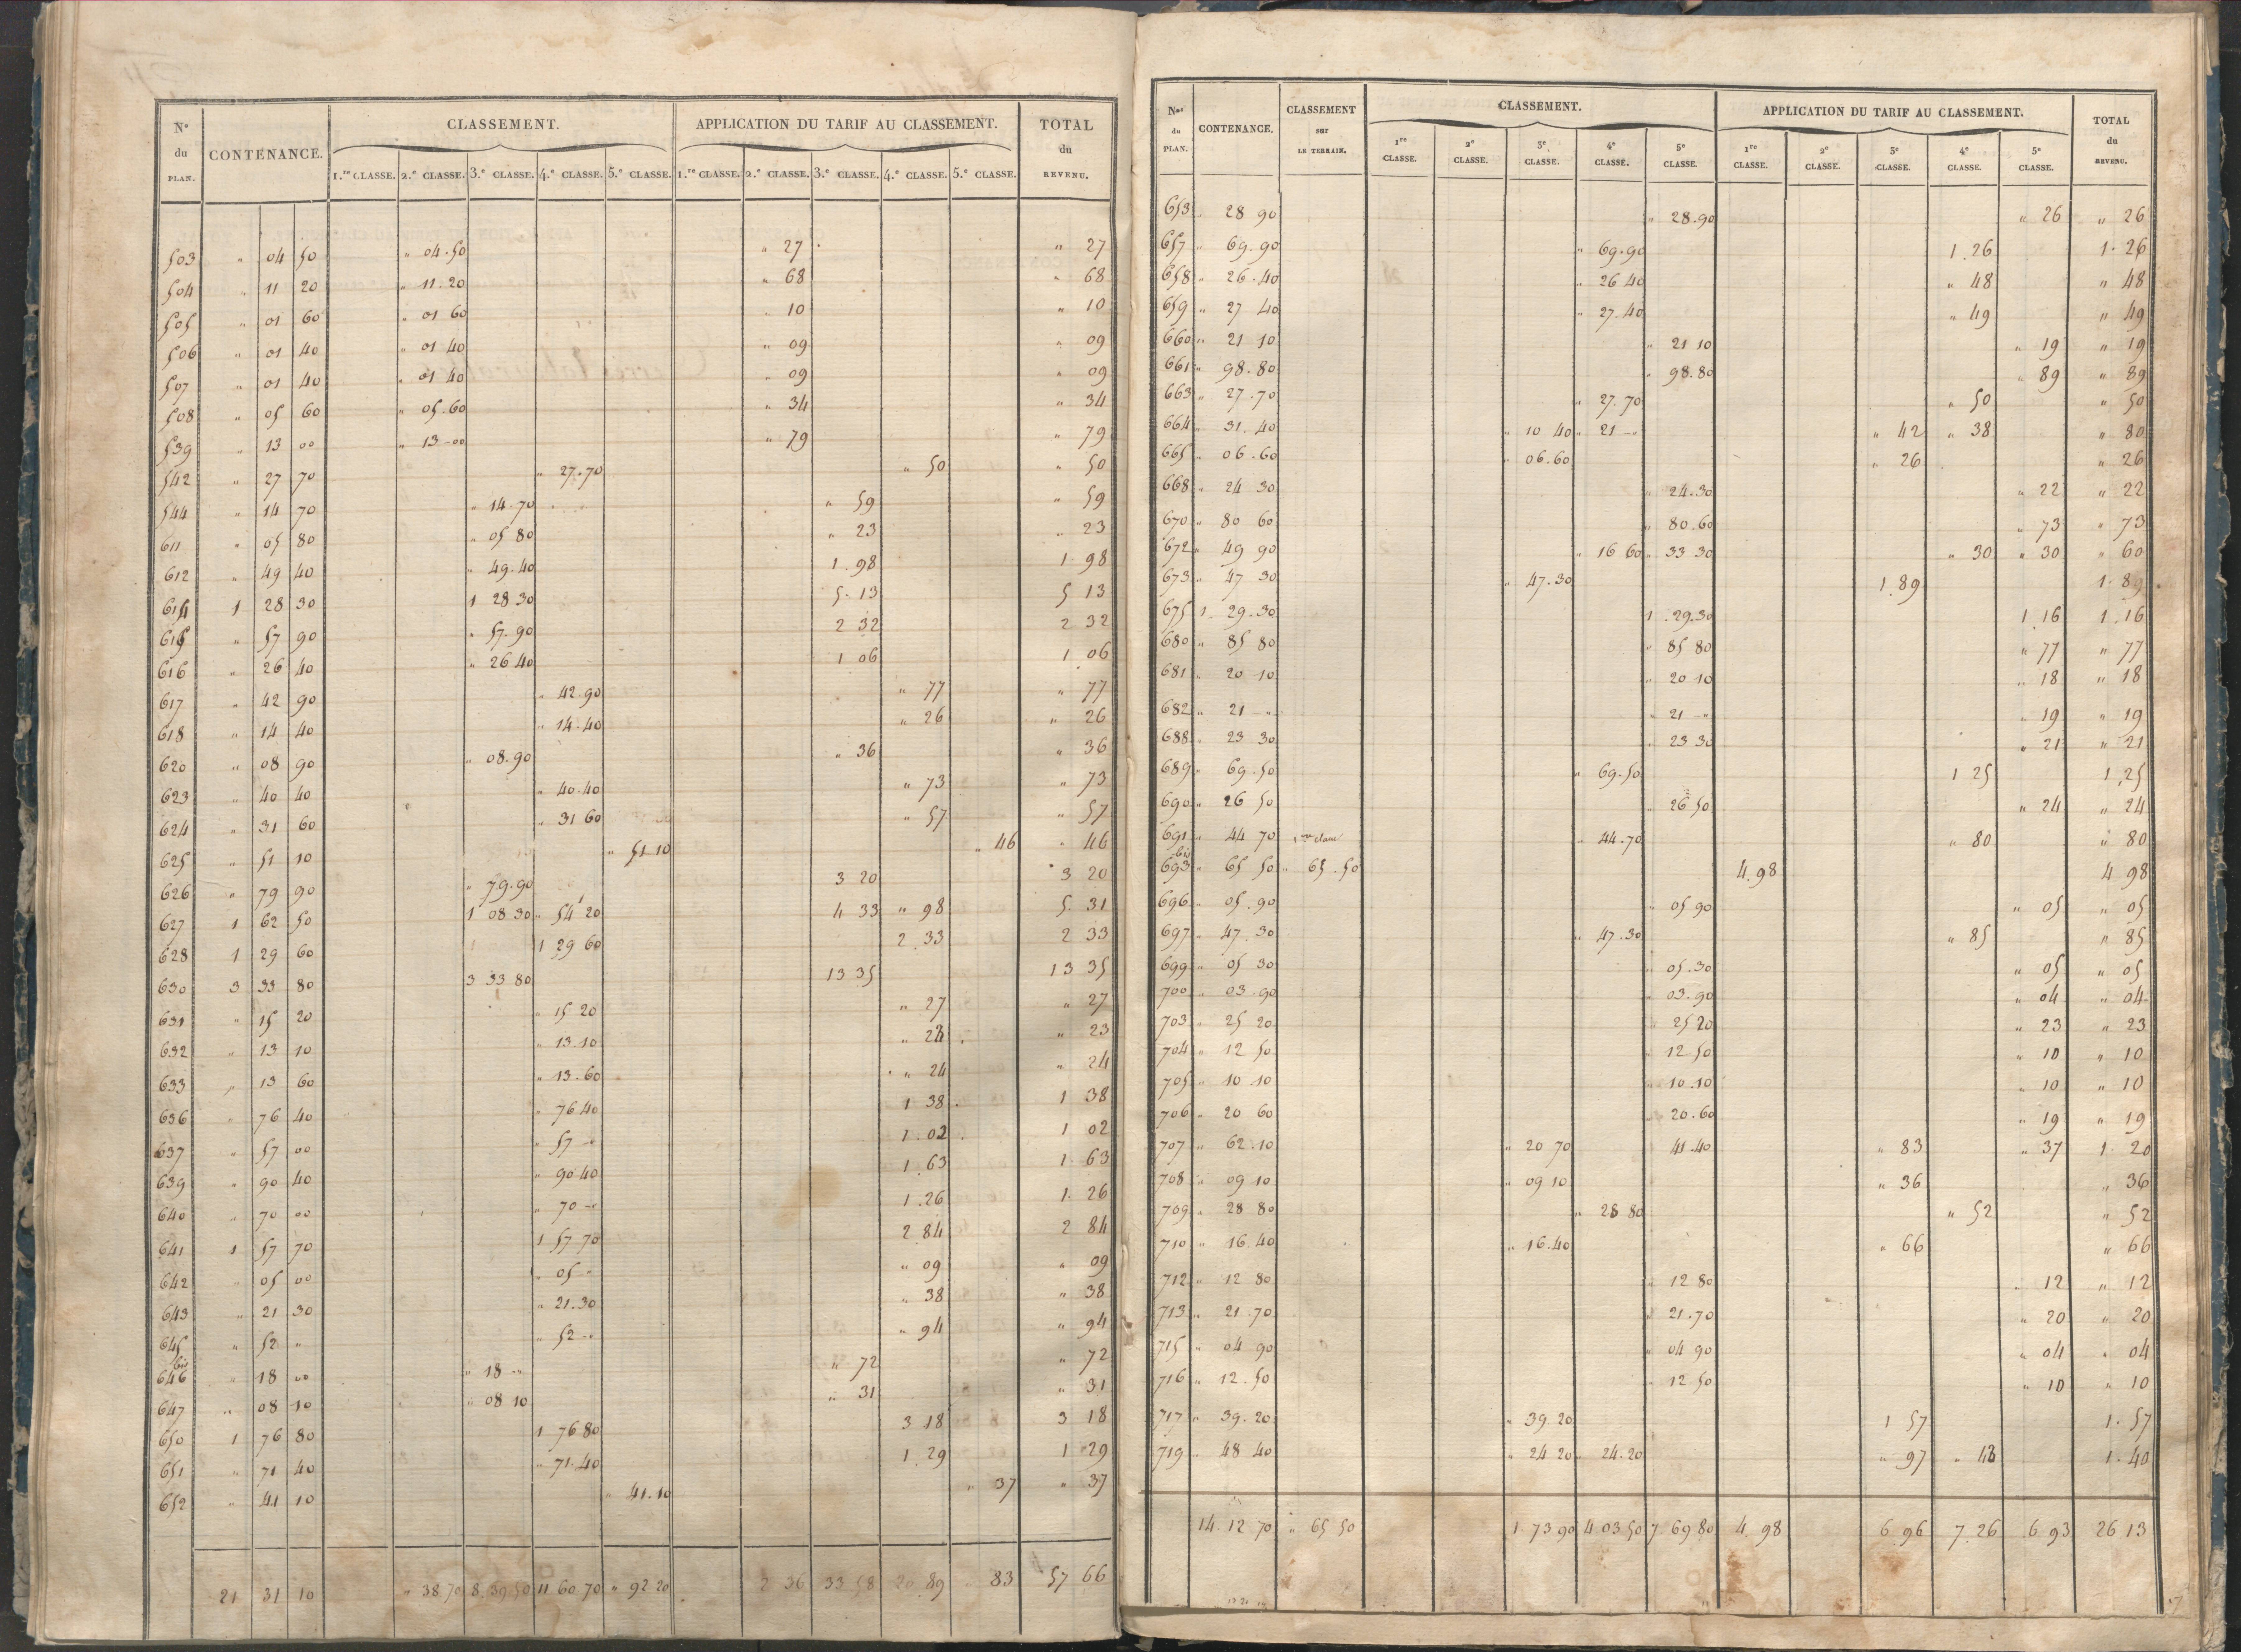 N° du PLAN. CONTENANCE. CLASSEMENT. APPLICATION DU TARIF AU CLASSEMENT. TOTAL du REVENU.
1.re CLASSE. 2.e CLASSE. 3.e CLASSE. 4.e CLASSE. 5.e CLASSE. 1.re CLASSE. 2.e CLASSE. 3.e CLASSE. 4.e CLASSE. 5.e CLASSE.
503 " 04 50 " 04.50 " 27 " 27
504 " 11 20 " 11.20 " 68 " 68
505 " 01 60 " 01 60 " 10 " 10
506 " 01 40 " 01 40 " 09 " 09
507 " 01 40 " 01 40 " 09 " 09
508 " 05 60 " 05.60 " 34 " 34
539 " 13 00 " 13-00 " 79 " 79
542 " 27 70 " 27.70 " 50 " 50
544 " 14 70 " 14.70 " 59 " 59
611 " 05 80 " 05 80 " 23 " 23
612 " 49 40 " 49.40 1.98 1.98
614 1 28 30 1 28 30 5.13 5 13
615 " 57 90 " 57.90 2 32 2 32
616 " 26 40 " 26 40 1 06 1 06
617 " 42 90 " 42.90 " 77 " 77
618 " 14 40 " 14.40 " 26 " 26
620 " 08 90 " 08.90 " 36 " 36
623 " 40 40 " 40.40 " 73 " 73
624 " 31 60 " 31 60 " 57 " 57
625 " 51 10 " 51.10 " 46 " 46
626 " 79 90 " 79.90 3 20 3 20
627 1 62 50 1 08 30 " 54 20 4 33 " 98 5.31
628 1 29 60 1 29 60 2.33 2 33
630 3 33 80 3 33 80 13 35 13 35
631 " 15 20 " 15 20 " 27 " 27
632 " 13 10 " 13.10 " 23 " 23
633 " 13 60 " 13.60 " 24 " 24
636 " 76 40 " 76.40 1 38 1 38
637 " 57 00 " 57 -" 1.02 1 02
639 " 90 40 " 90 40 1.63 1.63
640 " 70 00 " 70 -" 1.26 1.26
641 1 57 70 1 57 70 2 84 2 84
642 " 05 00 " 05 -" " 09 " 09
643 " 21 30 " 21.30 " 38 " 38
645 " 52 " " 52 -" " 94 " 94
bis
646 " 18 00 " 18 -" " 72 " 72
647 " 08 10 " 08 10 " 31 " 31
650 1 76 80 1 76 80 3 18 3 18
651 " 71 40 " 71.40 1.29 1 29
652 " 41 10 " 41.10 " 37 " 37
21 31 10 " 38 70 8.39.50 11 60 70 " 92 20 2 36 33 58 20 89 " 83 57 66
Nos du PLAN. CONTENANCE. CLASSEMENT sur LE TERRAIN. CLASSEMENT. APPLICATION DU TARIF AU CLASSEMENT. TOTAL du REVENU.
1re CLASSE. 2e CLASSE. 3e CLASSE. 4e CLASSE. 5e CLASSE. 1re CLASSE. 2e CLASSE. 3e CLASSE. 4e CLASSE. 5e CLASSE.
653 " 28 90 " 28.90 " 26 " 26
657 " 69.90 " 69.90 1.26 1.26
658 " 26.40 " 26 40 " 48 " 48
659 " 27 40 " 27.40 " 49 " 49
660 " 21 10 " 21 10 " 19 " 19
661 " 98.80 " 98.80 " 89 " 89
663 " 27.70 " 27.70 " 50 " 50
664 " 31.40 " 10 40 " 21 -" " 42 " 38 " 80
665 " 06.60 " 06.60 " 26 " 26
668 " 24 30 " 24.30 " 22 " 22
670 " 80 60 " 80.60 " 73 " 73
672 " 49 90 " 16 60 " 33 30 " 30 " 30 " 60
673 " 47 30 " 47.30 1.89 1.89
675 1.29.30 1.29.30 1.16 1.16
680 " 85 80 " 85 80 " 77 " 77
681 " 20 10 " 20 10 " 18 " 18
682 " 21 -" " 21 -" " 19 " 19
688 " 23 30 " 23 30 " 21 " 21
689 " 69.50 " 69.50 1 25 1.25
690 " 26 50 " 26 50 " 24 " 24
691 " 44 70 1ere classe " 44.70 " 80 " 80
bis
693 " 65 50 " 65.50 4.98 4 98
696 " 05.90 " 05 90 " 05 " 05
697 " 47.30 " 47.30 " 85 " 85
699 " 05 30 " 05.30 " 05 " 05
700 " 03.90 " 03.90 " 04 " 04
703 " 25 20 " 25 20 " 23 " 23
704 " 12 50 " 12 50 " 10 " 10
705 " 10 10 " 10.10 " 10 " 10
706 " 20 60 " 20.60 " 19 " 19
707 " 62.10 " 20 70 41.40 " 83 " 37 1.20
708 " 09 10 " 09 10 " 36 " 36
709 " 28 80 " 28 80 " 52 " 52
710 " 16.40 " 16.40 " 66 " 66
712 " 12 80 " 12 80 " 12 " 12
713 " 21.70 " 21.70 " 20 " 20
715 " 04 90 " 04 90 " 04 " 04
716 " 12.50 " 12 50 " 10 " 10
717 " 39.20 " 39.20 1 57 1.57
719 " 48 40 " 24 20 " 24.20 " 97 " 43 1.40
14.12 70 " 65 50 1 73 90 4 03 50 7 69 80 4.98 6 96 7.26 6 93 26.13